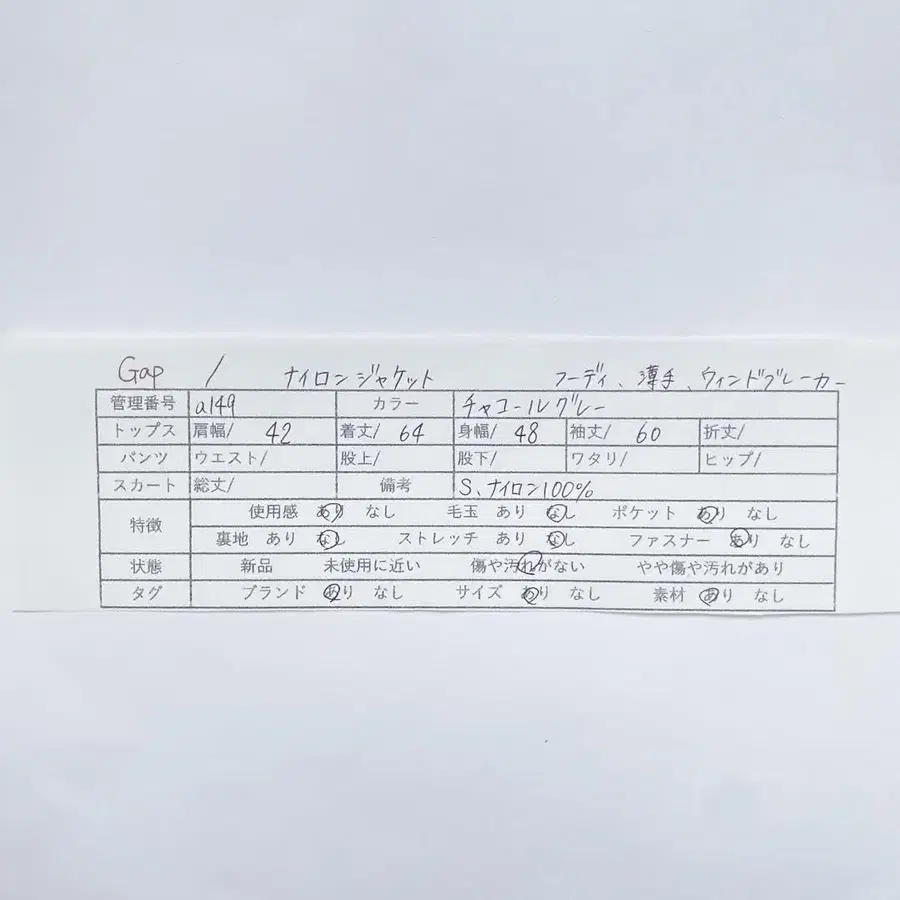 Gap / ナイロンジャケット フーディ、薄手、ウィンドブレーカー
管理番号 a149 カラー チャコールグレー
トップス 肩幅/ 42 着丈/ 64 身幅/ 48 袖丈/ 60 裄丈/
パンツ ウエスト/ 股上/ 股下/ ワタリ/ ヒップ/
スカート 総丈/ 備考 S、ナイロン100%
特徴 使用感 あり なし 毛玉 あり なし ポケット あり なし
裏地 あり なし ストレッチ あり なし ファスナー あり なし
状態 新品 未使用に近い 傷や汚れがない やや傷や汚れがあり
タグ ブランド あり なし サイズ あり なし 素材 あり なし